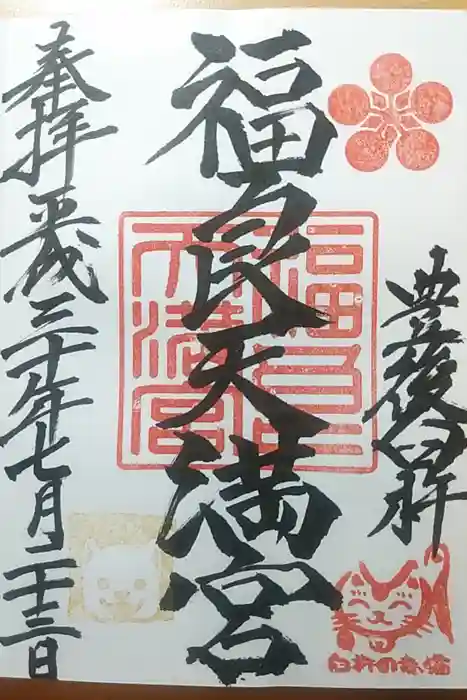 豊後臼杵
福良天満宮
福良天満宮
奉拝 平成三十年七月二十三日
臼杵の赤猫